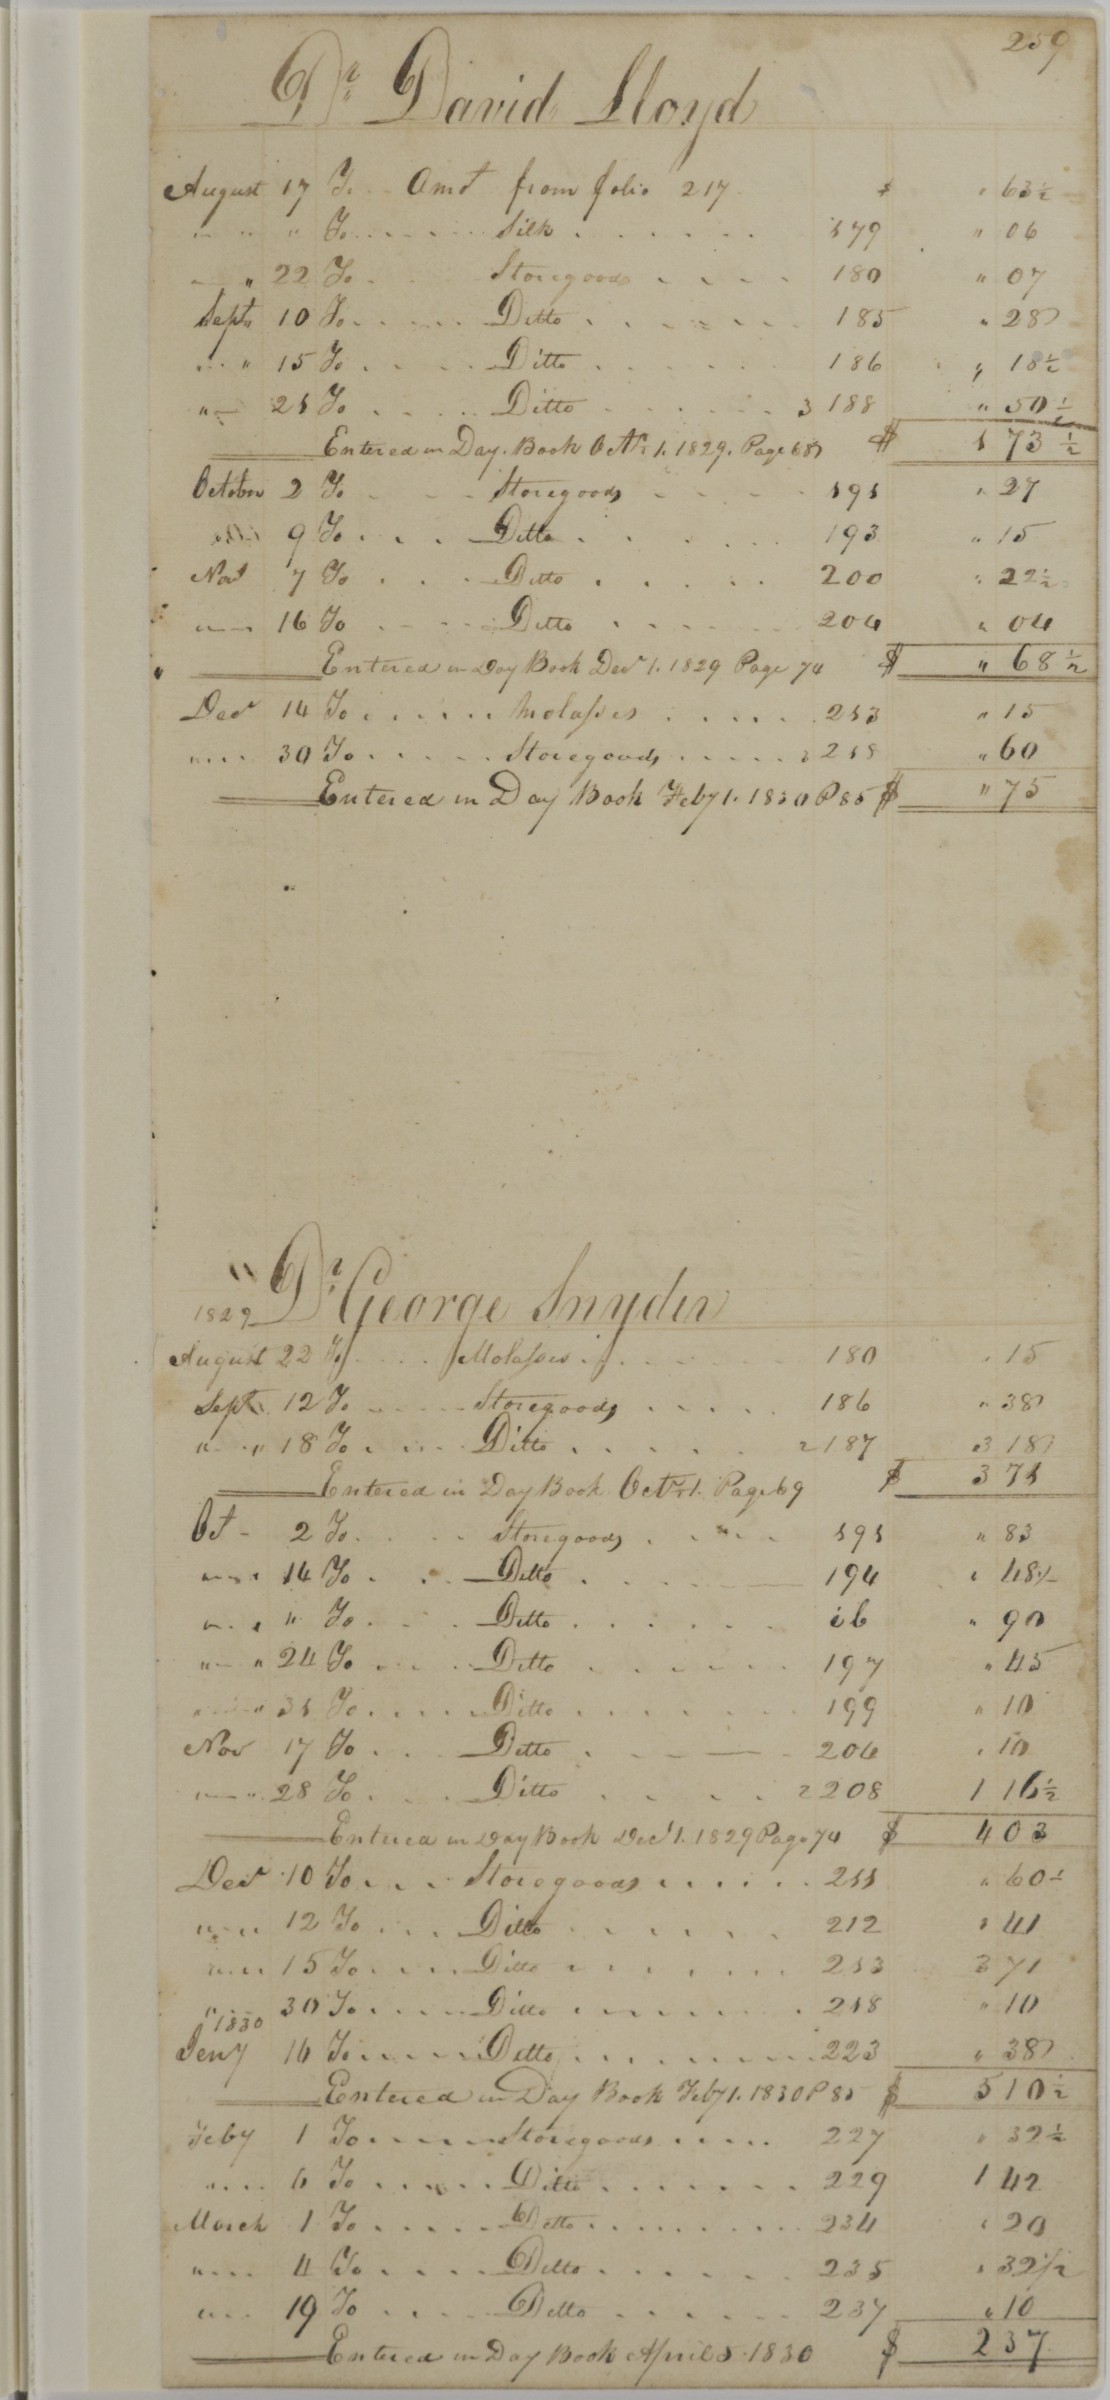 259
Dr David Lloyd
August 17 To Amot from folio 217 $ " 63½
" " " To Silk 179 " 06
" " 22 To Storegoods 180 " 07
Sept 10 To Ditto 185 " 28
" " 15 To Ditto 186 " 18½
" 21 To Ditto 3 188 " 50½
Entered in Day Book Octr 1. 1829. Page 68 $ 1 73½
October 2 To Storegoods 191 " 27
9 To Ditto 193 " 15
Novr 7 To Ditto 200 " 22½
" 16 To Ditto 204 " 04
Entered in Day Book Decr 1. 1829 Page 74 $ " 68½
Decr 14 To Molasses 213 " 15
" 30 To Storegoods 218 " 60
Entered in Day Book Feby 1. 1830 P 85 $ " 75
1829 Dr George Snyder
August 22 To Molasses 180 " 15
Sept 12 To Storegoods 186 " 38
" " 18 To Ditto 2 187 3 18
Entered in Day Book Octr 1. Page 69 $ 3 71
Oct 2 To Storegoods 191 " 83
" " 14 To Ditto 194 " 48½
" " " To Ditto ib " 90
" " 24 To Ditto 197 " 45
" " 31 To Ditto 199 " 10
Nov 17 To Ditto 204 " 10
" " 28 To Ditto 2 208 1 16½
Entered in Day Book Decr 1. 1829 Page 74 $ 4 03
Decr 10 To Storegoods 211 " 60½
" " 12 To Ditto 212 " 41
" " 15 To Ditto 213 3 71
" 30 To Ditto 218 " 10
1830
Jeny 16 To Ditto 223 " 38
Entered in Day Book Feby 1. 1830 P 85 $ 5 10½
Feby 1 To Storegoods 227 " 32½
" " 6 To Ditto 229 1 42
March 1 To Ditto 234 " 20
" " 4 To Ditto 235 " 32½
" " 19 To Ditto 237 " 10
Entered in Day Book April 5 1830 $ 2 37